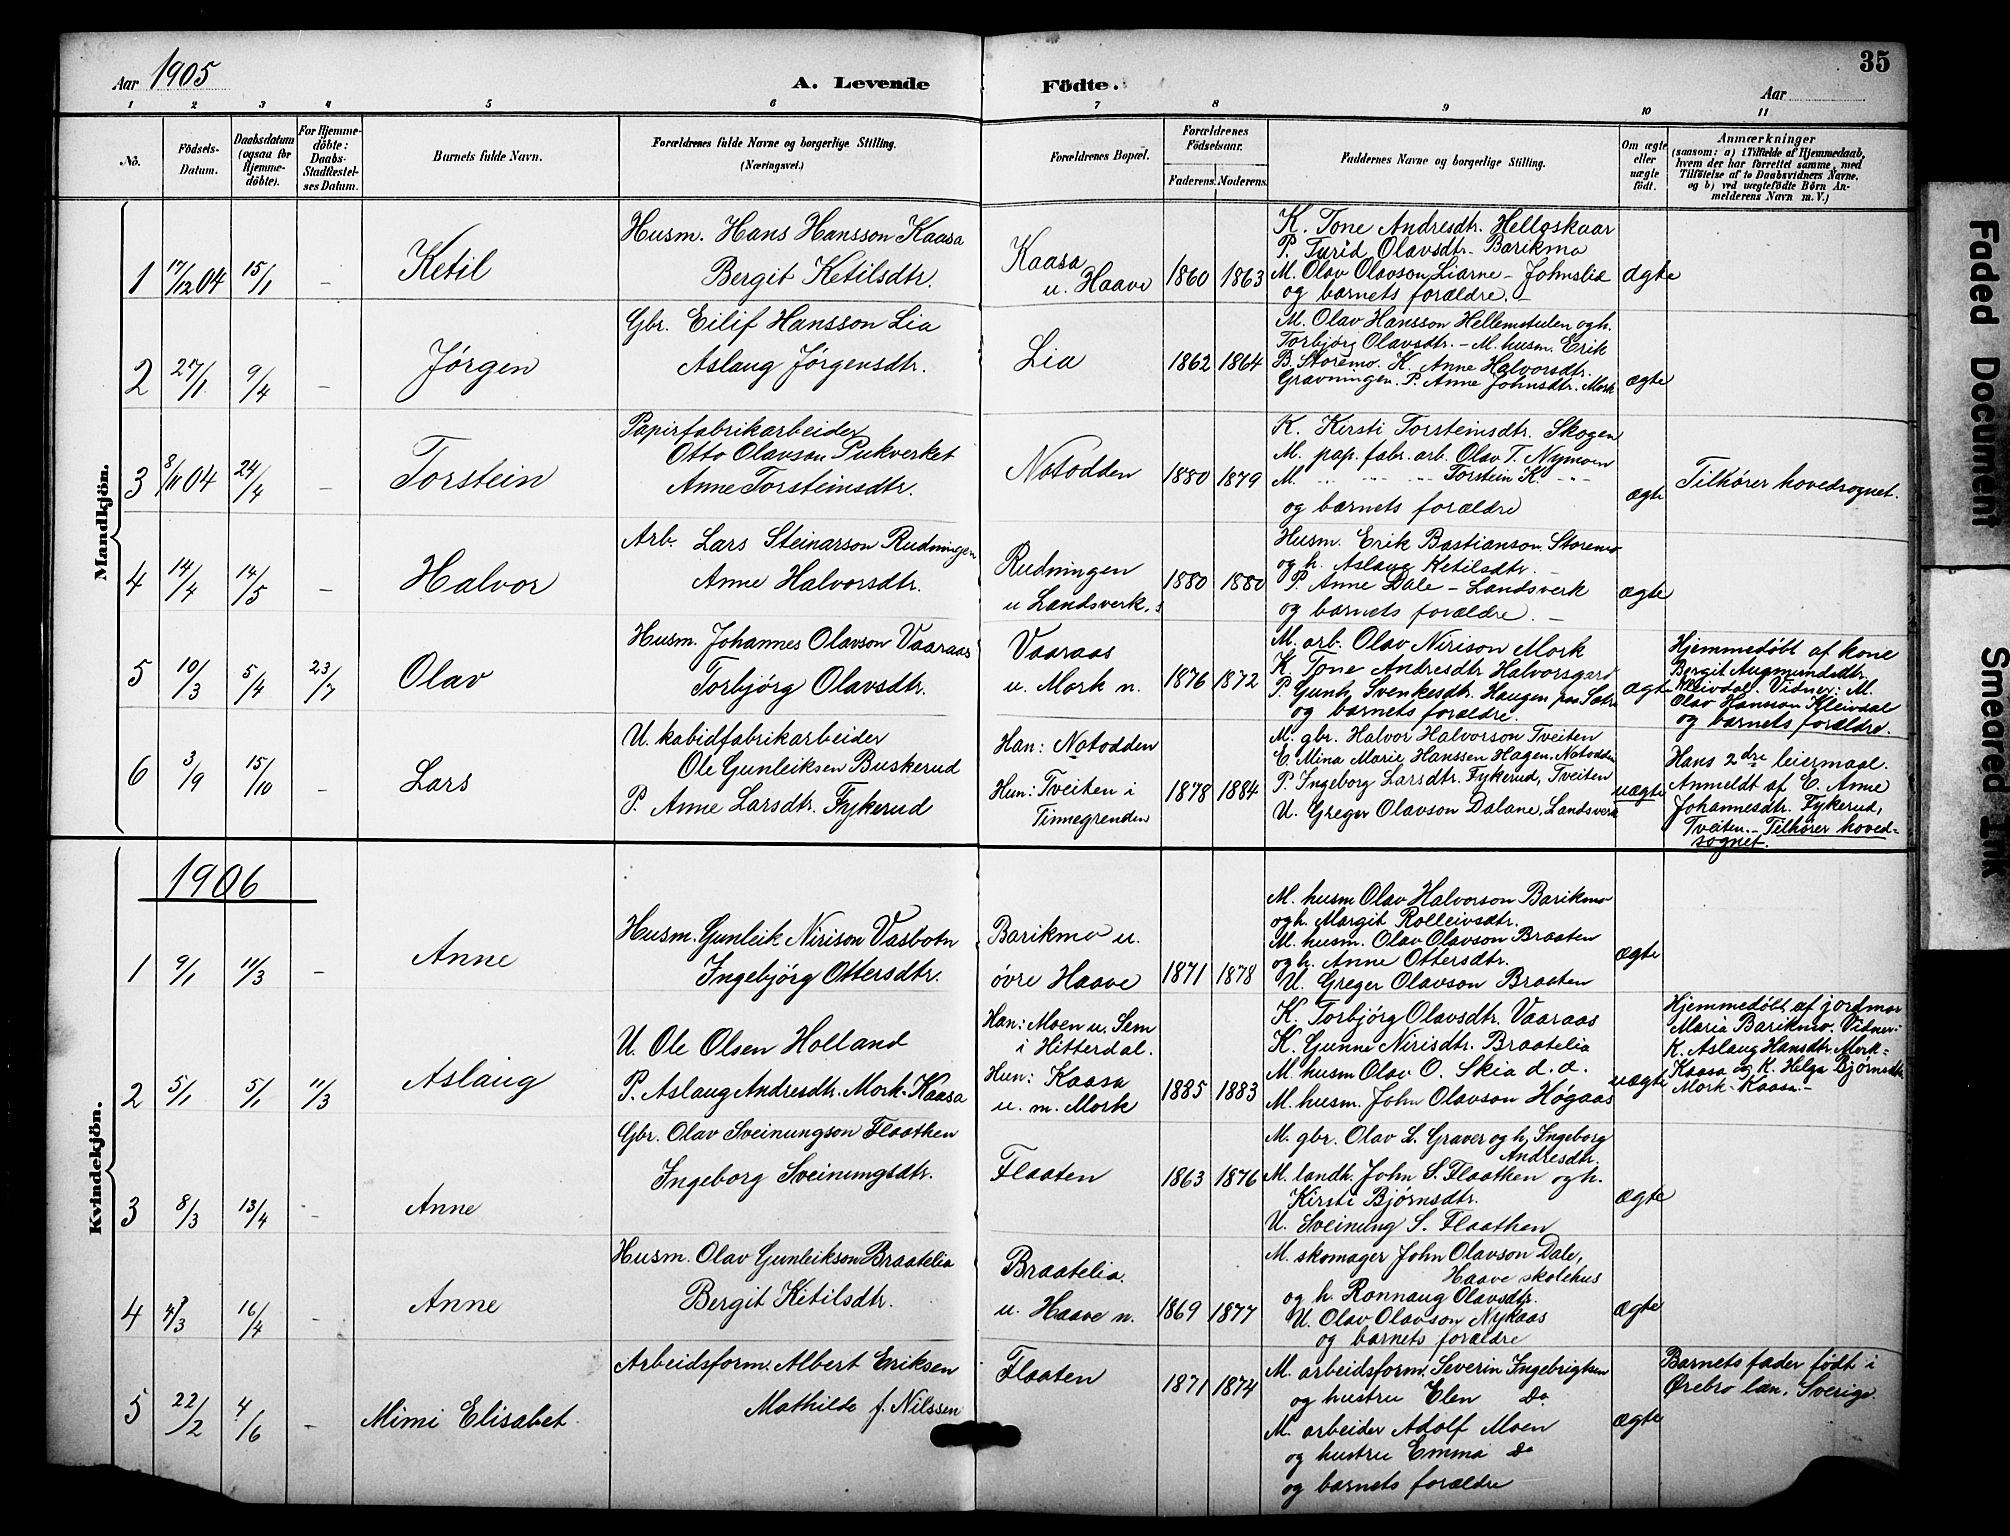 35
Aar 1905
A. Levende Födte.
Aar
1 2 3 4 5 6 7 8 9 10 11
No.
Födsels-Datum.
Daabsdatum (ogsaa for Hjemme-döbte).
For Hjemme-döbte: Daabs-Stadfæstel-ses Datum.
Barnets fulde Navn.
Forældrenes fulde Navne og borgerlige Stilling.
(Næringsvei.)
Forældrenes Bopæl.
Forældrenes Födselsaar.
Faderens. Moderens.
Faddernes Navne og borgerlige Stilling.
Om ægte eller uægte födt.
Anmærkninger
(saasom: a) i Tilfælde af Hjemmedaab,
hvem der har forrettet samme, med
Tilföielse af to Daabsvidners Navne,
og b) ved uægtefödte Börn An-
melderens Navn m. V.)
Mandkjön.
1 17/12 04 15/1 – Ketil
Husm. Hans Hansson Kaasa
Bergit Ketilsdtr.
Kaasa
u. Haave
1860 1863
K. Tone Andresdtr. Helloskaar
P. Turid Olavsdtr. Barikmo
M. Olav Olavson Liarne – Johnslia
og barnets forældre. –
ægte
2 27/1 9/4 – Jørgen
Gbr. Eilif Hansson Lia
Aslaug Jørgensdtr.
Lia
1862 1864
M. Olav Hansson Hellemstulen og h.
Torbjørg Olavsdtr. – M. husm. Erik
B. Storemo. K. Anne Halvorsdtr.
Gravningen. P. Anne Johnsdtr. Mork
ægte
3 8/11 04 24/4 – Torstein
Papirfabrikarbeider
Otto Olavson Pukverket
Anne Torsteinsdtr.
Notodden
1880 1879
K. Kersti Torsteinsdtr. Skogen
M. pap. fabr. arb. Olav T. Nymoen
M. –"– –"– –"– Torstein K. –"–
og barnets forældre
ægte
Tilhører hovedsognet.
4 14/4 14/5 – Halvor
Arb. Lars Steinarson Rudningen
Anne Halvorsdtr.
Rudningen
u Landsverk, s
1880 1880
Husm. Erik Bastianson Storemo
og h. Aslaug Ketilsdtr. –
P. Anne Dale – Landsverk
og barnets forældre. –
ægte
5 10/3 5/4 23/7 Olav
Husm. Johannes Olavson Vaaraas
Torbjørg Olavsdtr.
Vaaraas
u. Mork n.
1876 1872
M. arb. Olav Nirison Mork
K Tone Andresdtr Halvorsgerd
P. Gunh. Svenkesdtr. Haugen paa Sætre
og barnets forældre.
ægte
Hjemmedøbt af kone
Bergit Augmundsdtr.
Kleivdal. Vidner: M.
Olav Hansson Kleivdal
og barnets forældre.
6 3/9 15/10 – Lars
U. kabidfabrikarbeider
Ole Gunleiksen Buskerud
P. Anne Larsdtr. Fykerud
Han: Notodden
Hun: Tveiten i
Tinnegrenden
1878 1884
M. gbr. Halvor Halvorson Tveiten
E. Mina Marie Hanssen Hagen. Notodden
P. Ingeborg Larsdtr. Fykerud, Tveiten
U. Greger Olavson Dalane, Landsverk
uægte
Hans 2dre leiermaal.
Anmeldt af E. Anne
Johannesdtr. Fykerud,
Tveiten. – Tilhører hoved-
sognet.
1906
Kvindekjön.
1 9/1 11/3 – Anne
Husm. Gunleik Nirison Vasbotn
Ingebjörg Ottersdtr.
Barikmo u.
övre Haave
1871 1878
M. husm Olav Halvorson Barikmo
og h. Margit Rolleivsdtr.
M. husm. Olav Olavson Braaten
og h. Anne Ottersdtr.
U. Greger Olavson Braaten
ægte
2 5/1 5/1 11/3 Aslaug
U. Ole Olsen Holland
P. Aslaug Andresdtr. Mork-Kaasa
Han: Moen u. Sem
i Hitterdal.
Hun: Kaasa
u. m. Mork
1885 1883
K. Torbjørg Olavsdtr. Vaaraas
K. Gunne Nirisdtr. Braatelia
M. husm Olav O. Skia d. æ.
M. husm. John Olavson Høgaas
uægte
Hjemmedøbt af jordmor
Maria Barikmo. Vidner:
K. Aslaug Hansdtr. Mork-
Kaasa og K. Helga Bjørnsdtr
Mork-Kaasa. –
3 8/3 13/4 – Anne
Gbr. Olav Sveinungson Flaathen
Ingeborg Sveinungsdtr.
Flaaten
1863 1876
M. gbr. Olav L. Graver og h. Ingeborg
Andresdtr.
M. landh. John S. Flaathen og h.
Kirsti Bjørnsdtr.
U. Sveinung S. Flaathen
ægte
4 4/3 16/4 – Anne
Husm. Olav Gunleikson Braatelia
Bergit Ketilsdtr.
Braatelia
u. Haave n.
1869 1877
M. skomager John Olavson Dale,
Haave skolehus
og h. Ronnaug Olavsdtr.
U. Olav Olavson Nykaas
og barnets forældre
ægte
5 22/2 4/6 – Mimi Elisabet
Arbeidsform. Albert Eriksen
Mathilde f. Nilssen
Flaaten
1871 1874
M. arbeidsform. Severin Ingebrigtsen
og hustru Elen Do
M. arbeider Adolf Moen
og hustru Emma Do
og barnets forældre
ægte
Barnets fader født i
Ørebro län, Sverige.
Faded Document
Smeared Ink